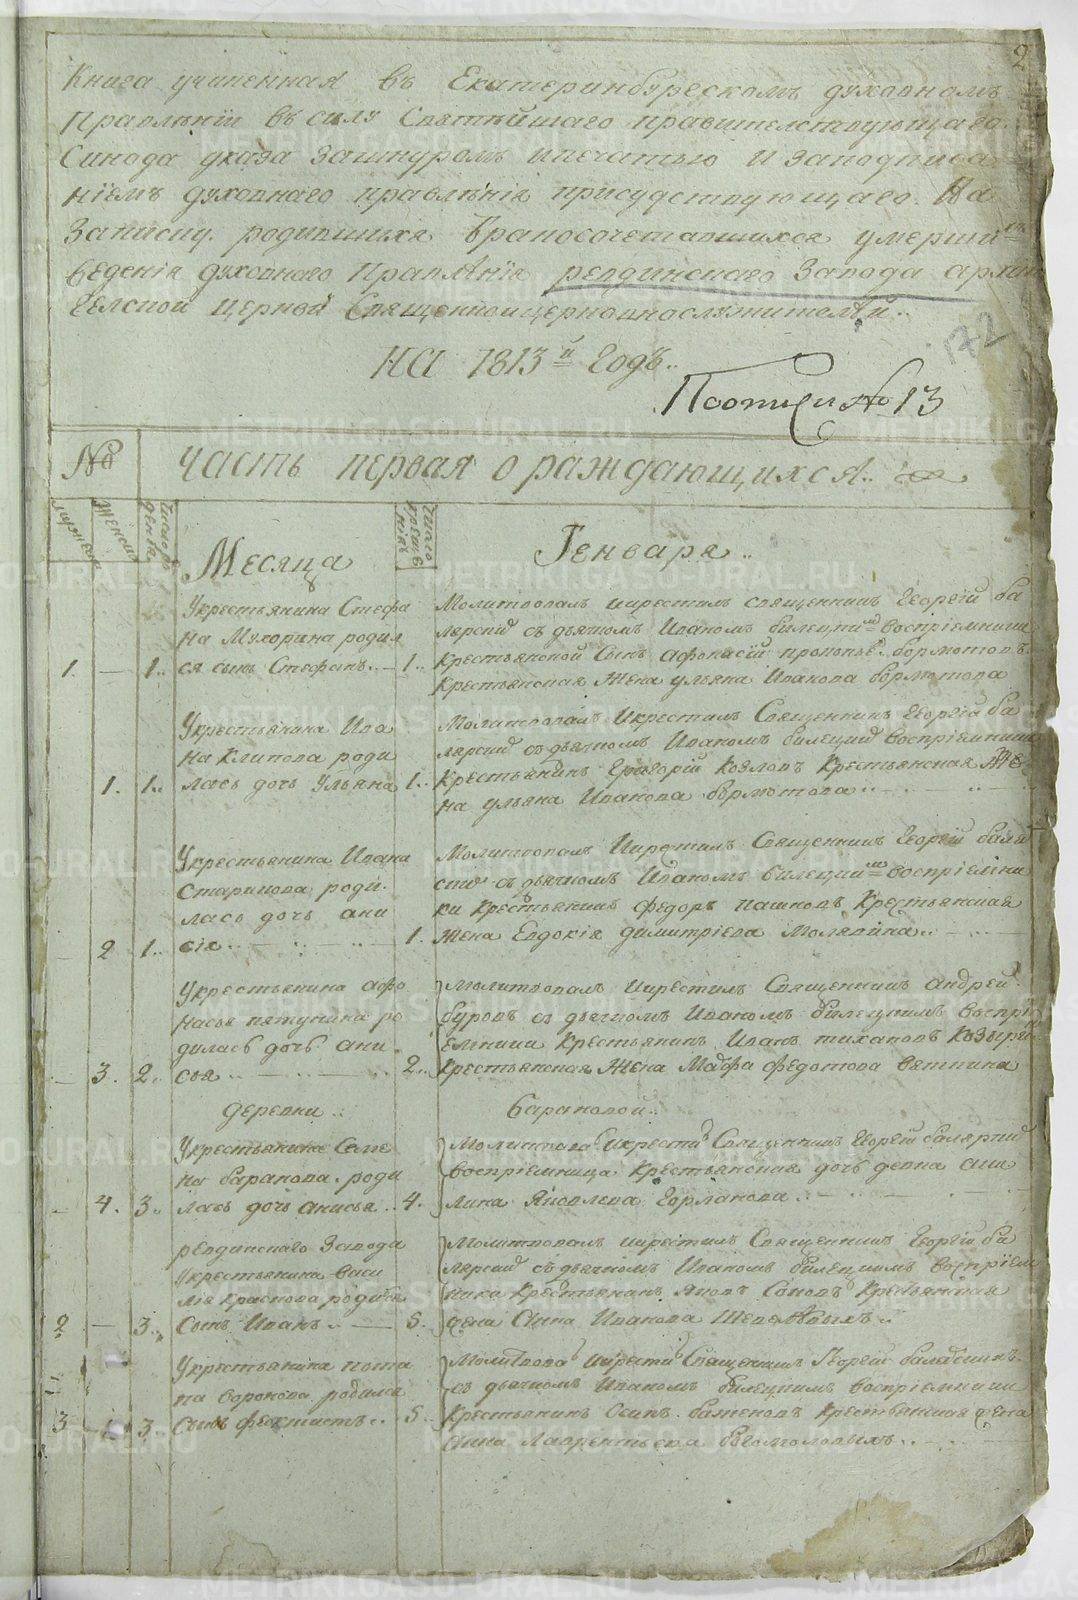 2
Книга учиненная въ Екатеринбургскомъ духовномъ
Правленіи въ силу Святѣйшаго правителствующаго
Синода указа зашнуромъ ипечатью и заподписа
ніемъ духовнаго правленія присудствующаго. На
Записку родившихся бракосочетавшихся умерши
веденія духовнаго Правленія ревдинскаго Завода архан
гелской церкви Священноицерковнослужителѣй..
172
на 1813й Годъ..
По описи № 13
№ Часть первая о раждающихся..
мужеска женска число рожденія Месяца число крещенія Генваря..
Укрестьянина Стефа
на Мухорина родил
1. — 1.. ся сынъ Стефанъ.. — 1..
Молитвовалъ икрестилъ священникъ Георгій ба
лярскій съ дьячкомъ Иваномъ билецкимъ воспріемники
Крестьянской Сынъ афонасій прокопьевъ бормотовъ
Крестьянская Жена ульяна Иванова бормотова
Укрестьянина Ива
на Климова роди
1. 1.. лась дочь Ульяна 1..
Молитвовалъ Икрестилъ Священникъ Георгій ба
лярскій съ дьячкомъ Иваномъ билецкимъ воспріемники
Крестьянинъ Григорій Козловъ Крестьянская Же
на ульяна Иванова бормотова..
Укрестьянина Ивана
Старикова роди
лась дочь ани
2 1.. сія.. 1.
Молитвовалъ Икрестилъ Священникъ Георгій баляр
скій съ дьячкомъ Иваномъ билецкимъ воспріемни
ки Крестьянинъ федоръ пашковъ Крестьянская
Жена Евдокія димитріева
Укрестьянина афо
насья петунина ро
дилась дочь ани
3. 2.. сья.. 2..
Молитвовалъ икрестилъ Священникъ андрей
буровъ съ дьячкомъ Иваномъ билецкимъ воспрі
емники Крестьянинъ Иванъ тихановъ
Крестьянская Жена Марфа федотова вяткина
деревни.. барановой..
Укрестьянина Семе
на баранова роди
4. 3.. лась дочь анисья.. 4.
Молитвовалъ икрестилъ Священникъ Георгій балярскій
воспріемница крестьянская дочь девка аки
лина Яковлева Горланова..
ревдинскаго Завода
Укрестьянина васи
лія краснова родился
2 — 3.. Сынъ Иванъ.. — 5.
Молитвовалъ икрестилъ Священникъ Георгій ба
лярскій съ дьячкомъ Иваномъ билецкимъ воспріем
ника Крестьянинъ яковъ Крестьянская
Жена Анна Иванова
Укрестьянина пота
па воронова родился
3 — 3.. Сынъ феоктистъ.. 5..
Молитвовалъ икрестилъ Священникъ Георгій балярскій
съ дьячкомъ Иваномъ билецкимъ воспріемники
Крестьянинъ Осипъ баженовъ Крестьянская жена
Анна Лаврентьева богомоловыхъ..
METRIKI.GASO-URAL.RU